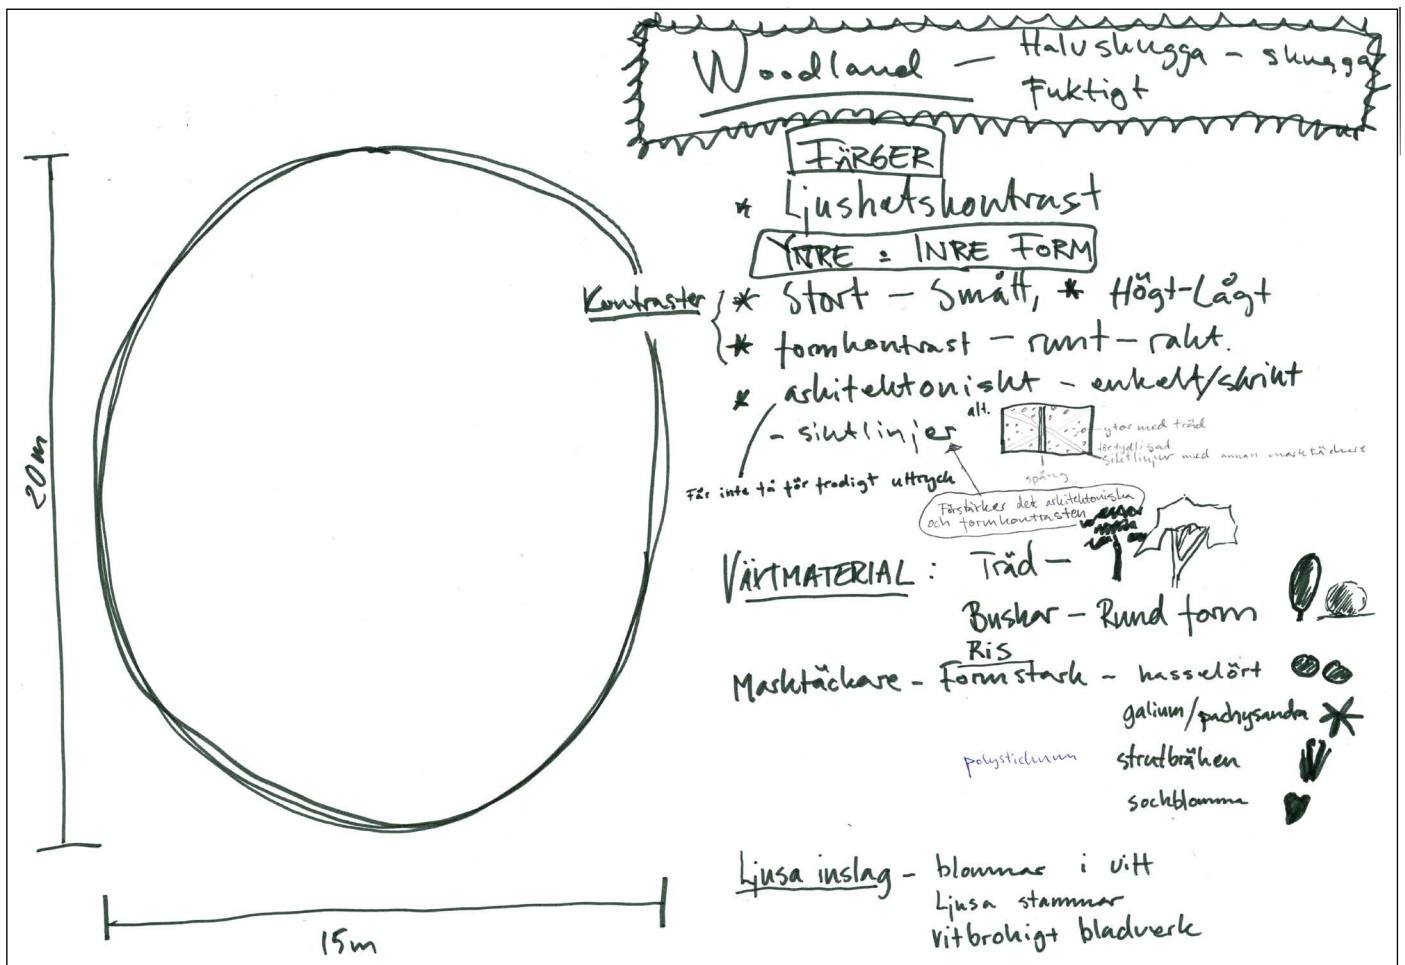 Woodland — Halvskugga - skugga
Fuktigt
FÄRGER
* Ljushetskontrast
YTTRE & INRE FORM
Kontraster
* Stort - Smått, * Högt-Lågt
* formkontrast - runt - rakt.
* arkitektoniskt - enkelt/strikt
- siktlinjer
alt.
ytor med träd
förtydligad
siktlinjer med annan marktäckare
spång
Får inte få för frodigt uttryck
Förstärker det arkitektoniska
och formkontrasten
VÄXTMATERIAL: Träd -
Buskar - Rund form
RIS
Marktäckare - Formstark - hasselört
galium/pachysandra
polystichum strutbräken
sockblomma
Ljusa inslag - blommar i vitt
Ljusa stammar
vitbrokigt bladverk
20m
15m